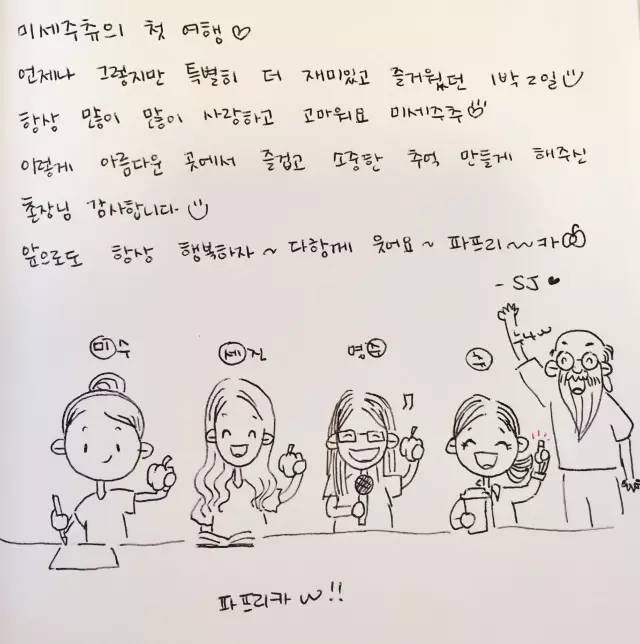 미세주츄의 첫 여행♡
언제나 그렇지만 특별히 더 재미있고 즐거웠던 1박 2일
항상 많이 많이 사랑하고 고마워요 미세주츄
이렇게 아름다운 곳에서 즐겁고 소중한 추억 만들게 해주신
촌장님 감사합니다
앞으로도 항상 행복하자~ 다함께 웃어요~ 파프리~~카
- SJ ♥
미수
세진
명주
파프리카 w!!